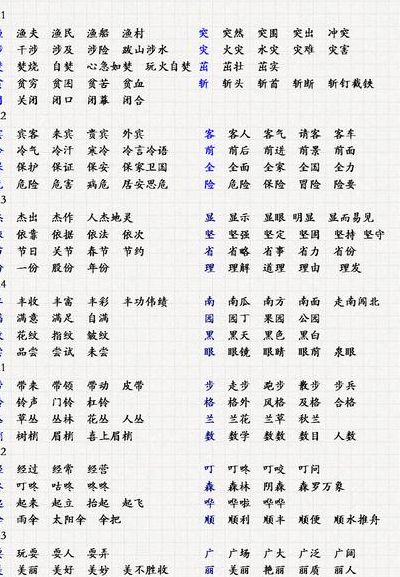 1
渔夫 渔民 渔船 渔村 突 突然 突围 突出 冲突
干涉 涉及 涉险 跋山涉水 灾 火灾 水灾 灾难 灾害
焚烧 自焚 心急如焚 玩火自焚 茁 茁壮 茁实
贫穷 贫困 贫苦 贫血 斩 斩头 斩首 斩断 斩钉截铁
关闭 闭口 闭幕 闭合
2
宾客 来宾 贵宾 外宾 客 客人 客气 请客 客车
冷气 冷汗 寒冷 冷言冷语 前 前后 前进 前景 前面
保护 保证 保安 保家卫国 全 全面 全家 全国 全力
危险 危害 病危 居安思危 险 危险 保险 冒险 险要
3
杰出 杰作 人杰地灵 显 显示 显眼 明显 显而易见
依靠 依据 依法 依次 坚 坚强 坚定 坚固 坚持 坚守
节日 关节 春节 节约 省 省略 省事 省力 省份
一份 股份 年份 理 理解 道理 理由 理发
4
丰收 丰富 丰彩 丰功伟绩 南 南瓜 南方 南面 走南闯北
满意 满足 自满 园 园丁 果园 公园
花纹 指纹 皱纹 黑 黑天 黑色 黑白
品尝 尝试 未尝 眼 眼镜 眼睛 眼前 泉眼
1
带来 带领 带动 皮带 步 走步 跑步 散步 步兵
铃声 门铃 杠铃 格 格外 风格 及格 合格
草丛 丛林 花丛 人丛 兰 兰花 兰草 秋兰
树梢 眉梢 喜上眉梢 数 数学 数数 数目 人数
2
经过 经常 经营 叮 叮咚 叮咬 叮问
叮咚 咕咚 咚咚 森 森林 阴森 森罗万象
起来 起立 抬起 起飞 哗 哗啦 哗哗
雨伞 太阳伞 伞把 顺 顺利 顺丰 顺便 顺水推舟
3
玩耍 耍人 耍弄 广 广场 广大 广泛 广阔
美丽 美好 美妙 美不胜收 丽 美丽 艳丽 丽质 丽人